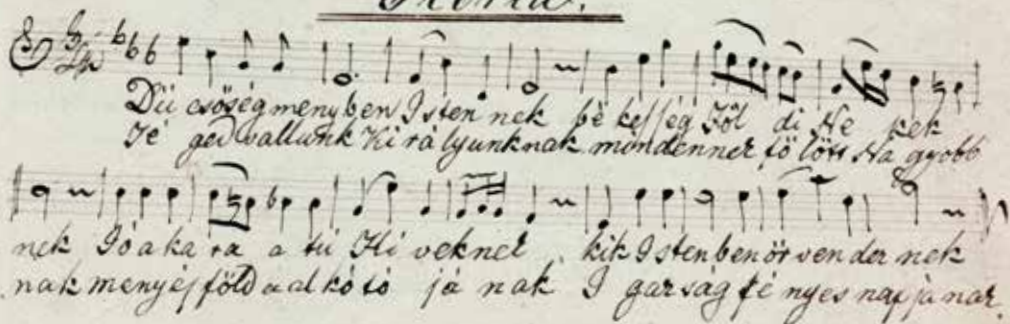 Gloria.
Dü csőség menyben Isten nek bé kesség Föl di Ne kek
Té ged vallunk Ki rá lyunknak mindennek fö lött Na gyobb
nek Jó a ka ra a tú Hi veknek kik Istenben ör venden nek
nak meny és föld a al kó tó já nak I gazság fé nyes nap já nak.